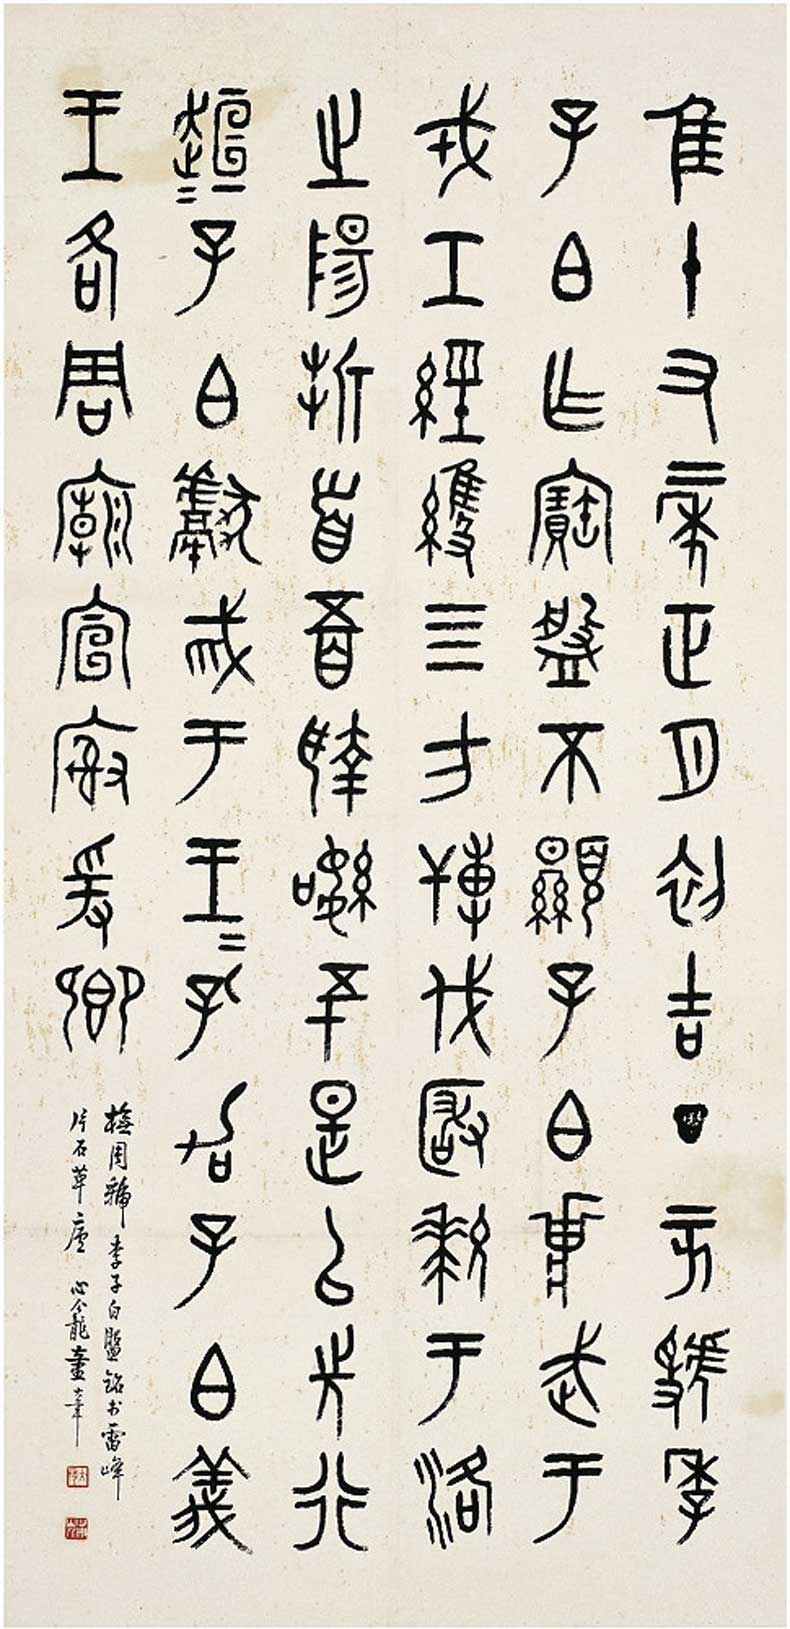 隹十又二年正月初吉丁亥虢季
子白乍寶盤不顯子白武于
戎工經維四方搏伐玁狁于洛
之陽折首五百執訊五十是以先行
桓=子白獻馘于王=孔加子白義
王各周廟宣榭爰卿
橅周虢季子白盤銘於雷峰
片石草廬 心龕童大年